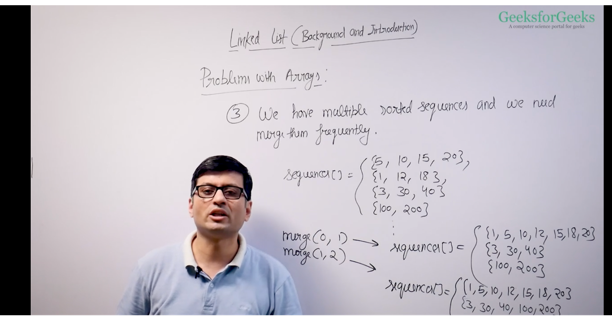 GeeksforGeeks
A computer science portal for geeks
Linked List (Background and Introduction)
Problems with Arrays:
③ We have multiple sorted sequences and we need
merge them frequently.
sequences[] = { {5, 10, 15, 20},
{1, 12, 18},
{3, 30, 40}
{100, 200}
:
merge(0, 1) → sequences[] = { {1, 5, 10, 12, 15, 18, 20}
{3, 30, 40}
{100, 200}
merge(1, 2) → sequences[] = { {1, 5, 10, 12, 15, 18, 20}
{3, 30, 40, 100, 200}